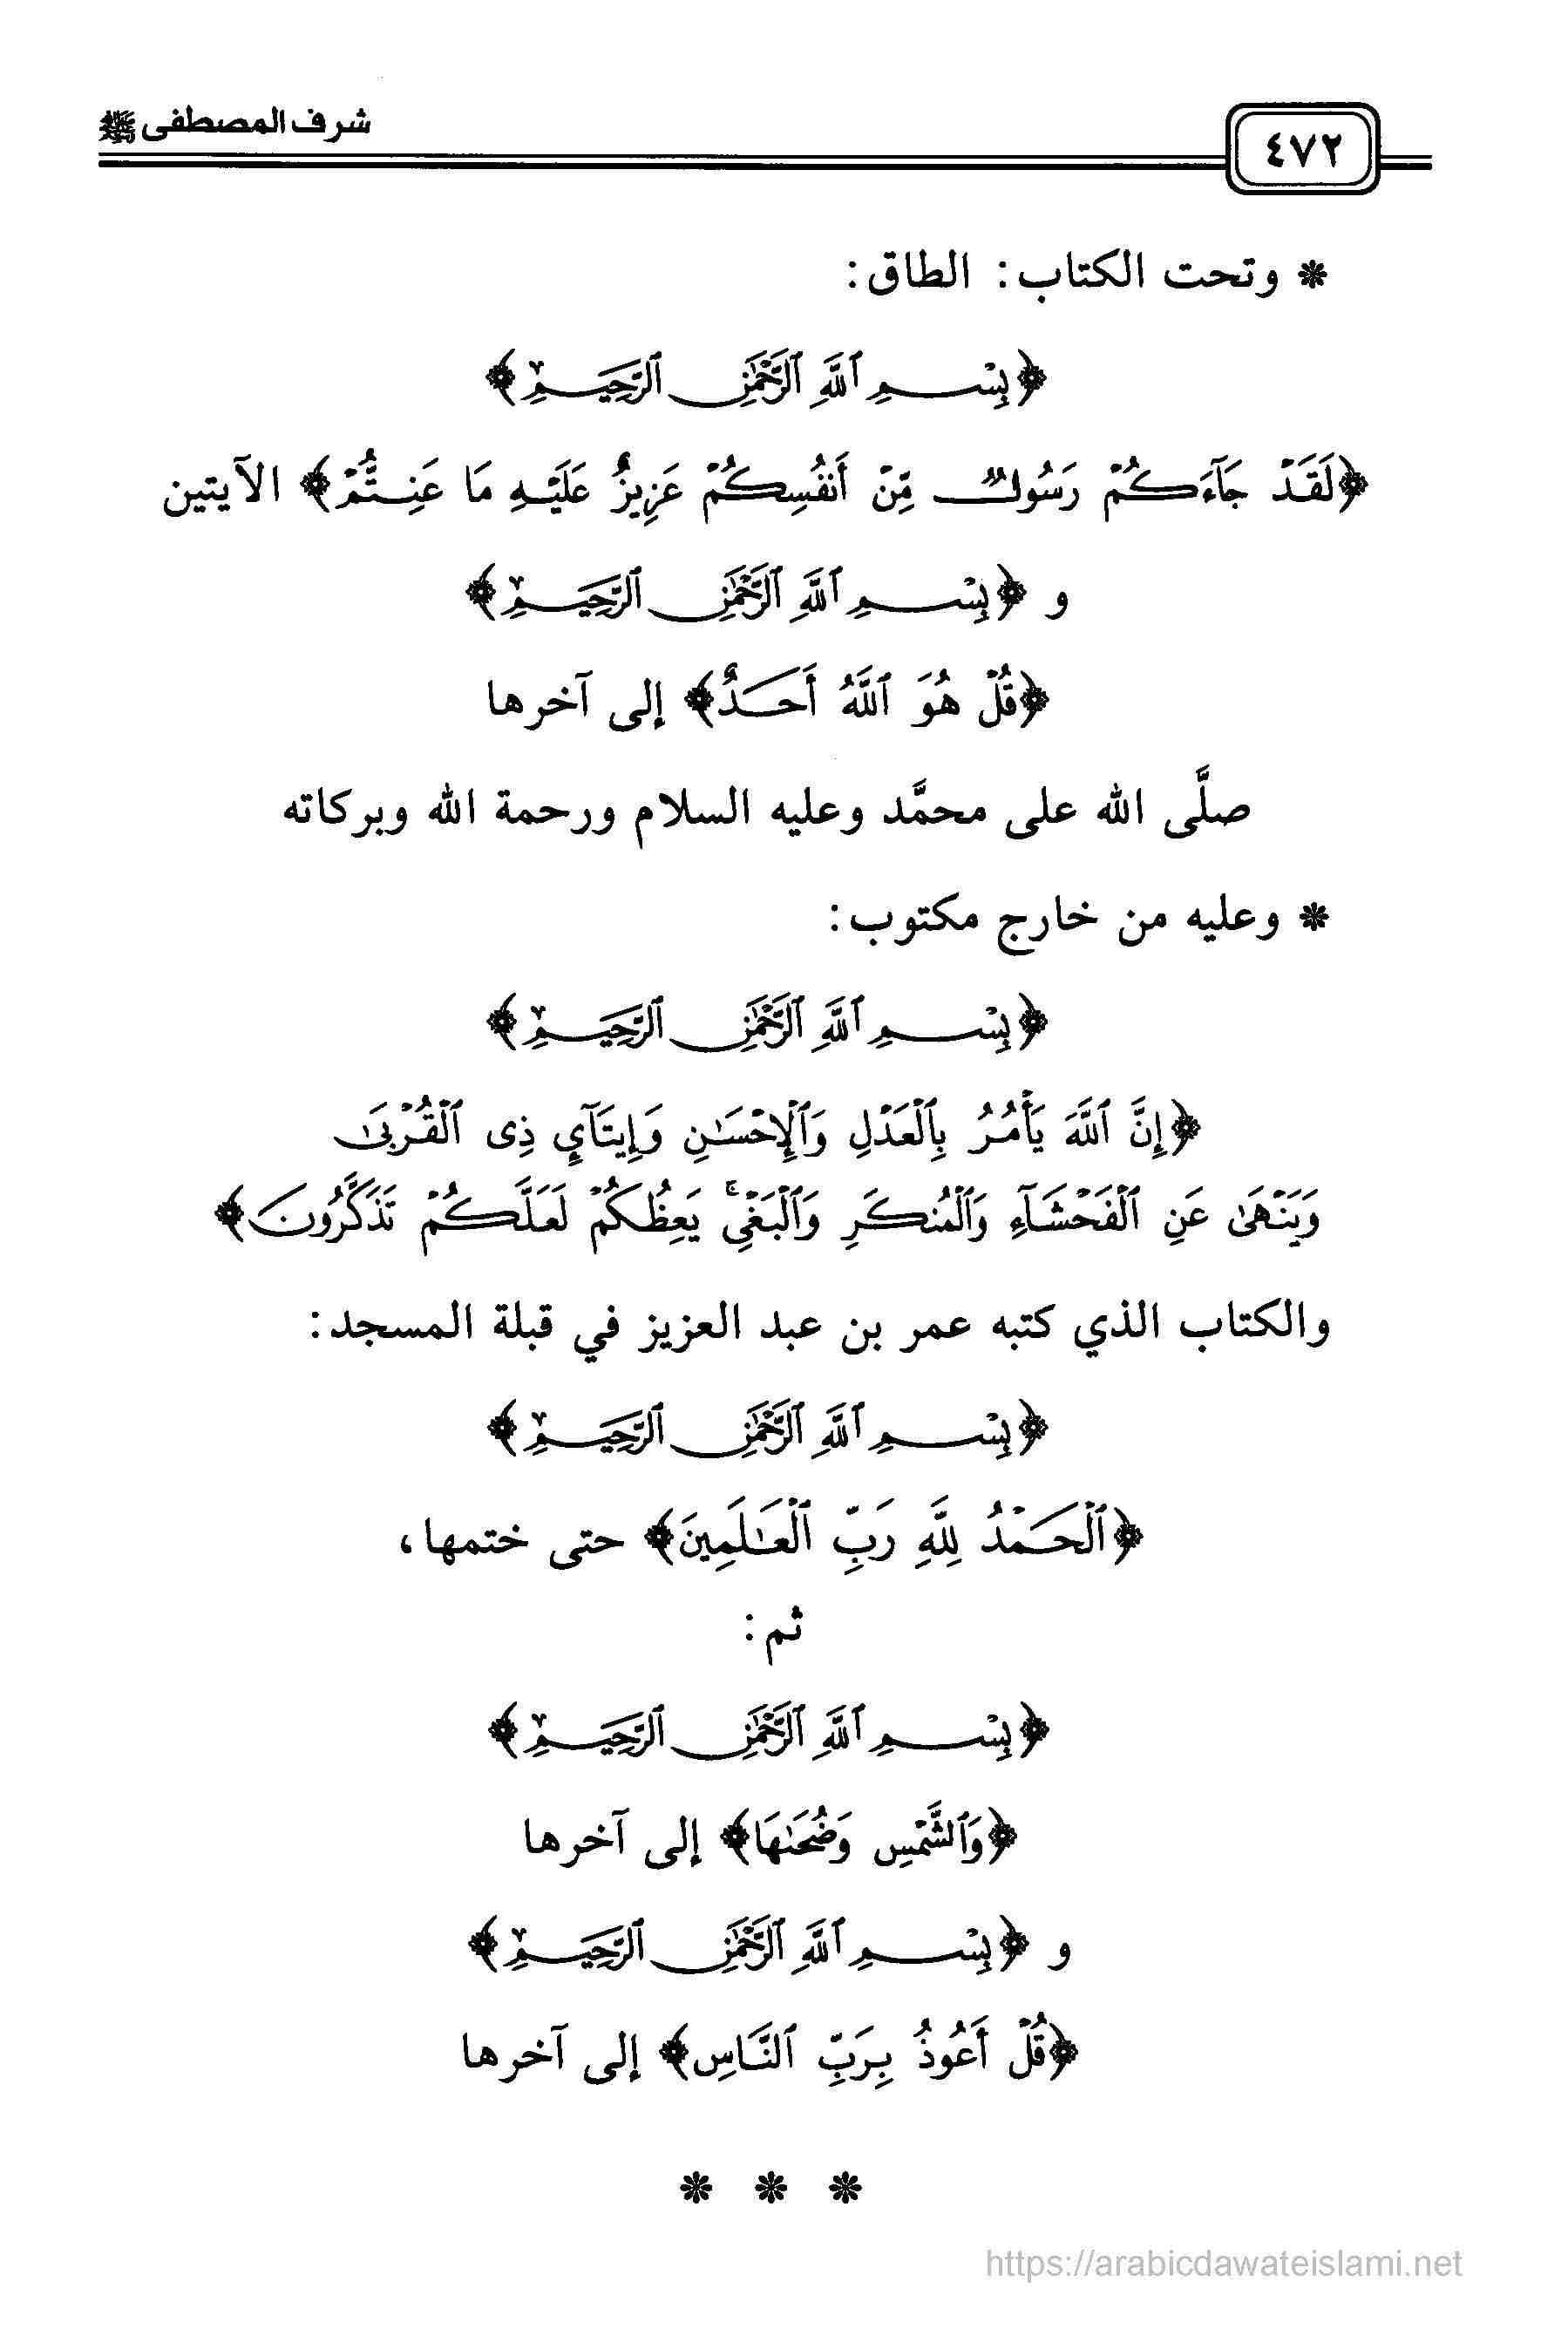 شرف المصطفى ﷺ
٤٧٢
* وتحت الكتاب: الطاق:
﴿بِسْمِ ٱللَّهِ ٱلرَّحْمَٰنِ ٱلرَّحِيمِ﴾
﴿لَقَدْ جَآءَكُمْ رَسُولٌ مِّنْ أَنفُسِكُمْ عَزِيزٌ عَلَيْهِ مَا عَنِتُّمْ﴾ الآيتين
و ﴿بِسْمِ ٱللَّهِ ٱلرَّحْمَٰنِ ٱلرَّحِيمِ﴾
﴿قُلْ هُوَ ٱللَّهُ أَحَدٌ﴾ إلى آخرها
صلَّى الله على محمَّد وعليه السلام ورحمة الله وبركاته
* وعليه من خارج مكتوب:
﴿بِسْمِ ٱللَّهِ ٱلرَّحْمَٰنِ ٱلرَّحِيمِ﴾
﴿إِنَّ ٱللَّهَ يَأْمُرُ بِٱلْعَدْلِ وَٱلْإِحْسَٰنِ وَإِيتَآيِٕ ذِى ٱلْقُرْبَىٰ
وَيَنْهَىٰ عَنِ ٱلْفَحْشَآءِ وَٱلْمُنكَرِ وَٱلْبَغْىِ ۚ يَعِظُكُمْ لَعَلَّكُمْ تَذَكَّرُونَ﴾
والكتاب الذي كتبه عمر بن عبد العزيز في قبلة المسجد:
﴿بِسْمِ ٱللَّهِ ٱلرَّحْمَٰنِ ٱلرَّحِيمِ﴾
﴿ٱلْحَمْدُ لِلَّهِ رَبِّ ٱلْعَٰلَمِينَ﴾ حتى ختمها،
ثم:
﴿بِسْمِ ٱللَّهِ ٱلرَّحْمَٰنِ ٱلرَّحِيمِ﴾
﴿وَٱلشَّمْسِ وَضُحَىٰهَا﴾ إلى آخرها
و ﴿بِسْمِ ٱللَّهِ ٱلرَّحْمَٰنِ ٱلرَّحِيمِ﴾
﴿قُلْ أَعُوذُ بِرَبِّ ٱلنَّاسِ﴾ إلى آخرها
* * *
https://arabicdawateislami.net